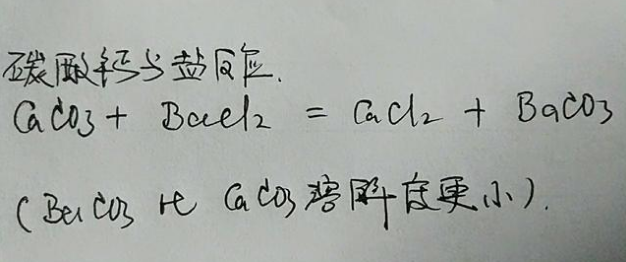 碳酸钙与盐反应.
CaCO3 + BaCl2 = CaCl2 + BaCO3
(BaCO3 比 CaCO3 溶解度更小).